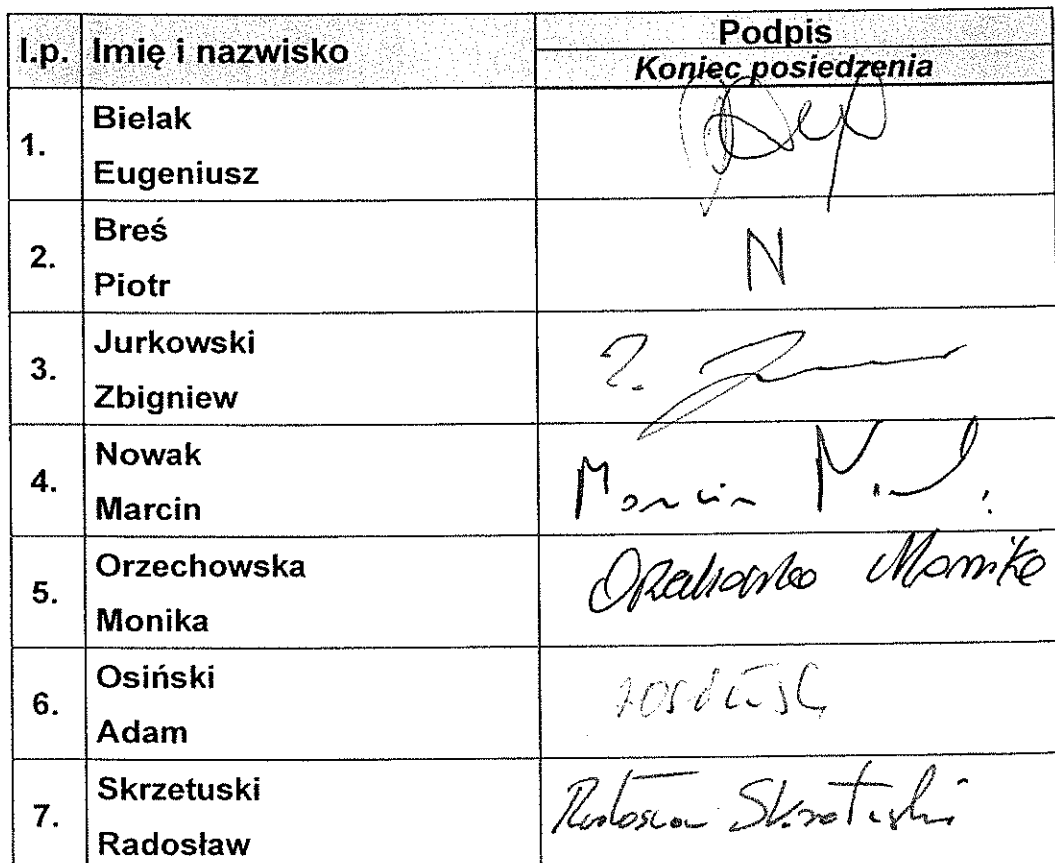 l.p. Imię i nazwisko Podpis
Koniec posiedzenia
1. Bielak
Eugeniusz
2. Breś
Piotr
N
3. Jurkowski
Zbigniew
4. Nowak
Marcin
Marcin
5. Orzechowska
Monika
Orzechowska Monika
6. Osiński
Adam
7. Skrzetuski
Radosław
Radosław Skrzetuski